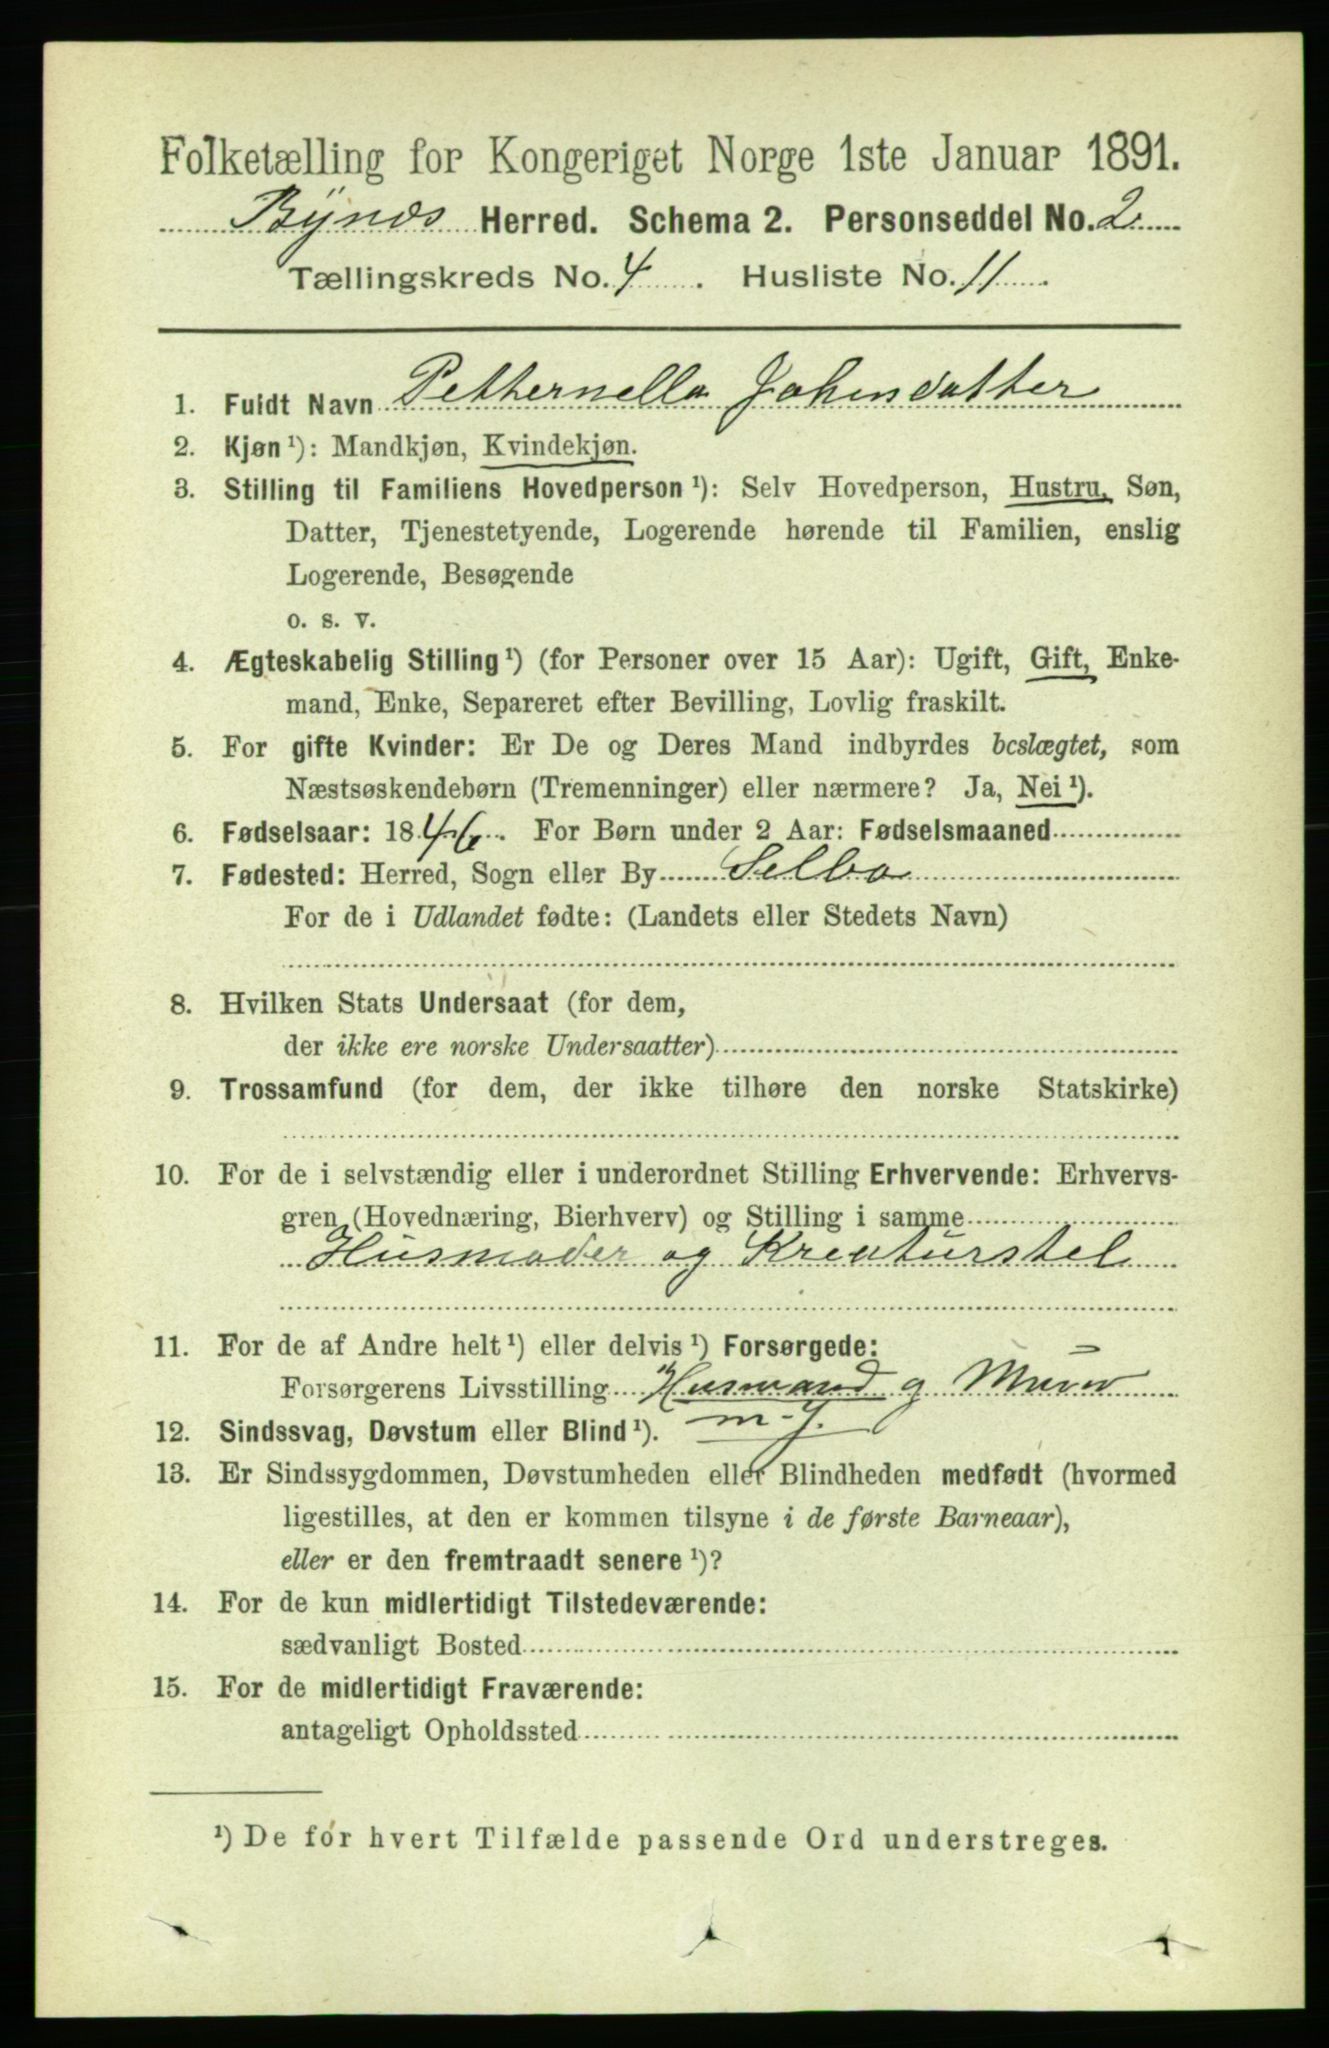 Folketælling for Kongeriget Norge 1ste Januar 1891.
Bynes Herred. Schema 2. Personseddel No. 2
Tællingskreds No. 4. Husliste No. 11
1. Fuldt Navn Pethernella Johnsdatter
2. Kjøn ¹): Mandkjøn, Kvindekjøn.
3. Stilling til Familiens Hovedperson ¹): Selv Hovedperson, Hustru, Søn,
Datter, Tjenestetyende, Logerende hørende til Familien, enslig
Logerende, Besøgende
o. s. v.
4. Ægteskabelig Stilling ¹) (for Personer over 15 Aar): Ugift, Gift, Enke-
mand, Enke, Separeret efter Bevilling, Lovlig fraskilt.
5. For gifte Kvinder: Er De og Deres Mand indbyrdes beslægtet, som
Næstsøskendebørn (Tremenninger) eller nærmere? Ja, Nei ¹).
6. Fødselsaar: 1846. For Børn under 2 Aar: Fødselsmaaned
7. Fødested: Herred, Sogn eller By Selbo
For de i Udlandet fødte: (Landets eller Stedets Navn)
8. Hvilken Stats Undersaat (for dem,
der ikke ere norske Undersaatter)
9. Trossamfund (for dem, der ikke tilhøre den norske Statskirke)
10. For de i selvstændig eller i underordnet Stilling Erhvervende: Erhvervs-
gren (Hovednæring, Bierhverv) og Stilling i samme
Husmoder og Kreaturstel
11. For de af Andre helt ¹) eller delvis ¹) Forsørgede:
Forsørgerens Livsstilling Husmand g Murer
m-J.
12. Sindssvag, Døvstum eller Blind ¹).
13. Er Sindssygdommen, Døvstumheden eller Blindheden medfødt (hvormed
ligestilles, at den er kommen tilsyne i de første Barneaar),
eller er den fremtraadt senere ¹)?
14. For de kun midlertidigt Tilstedeværende:
sædvanligt Bosted
15. For de midlertidigt Fraværende:
antageligt Opholdssted
¹) De for hvert Tilfælde passende Ord understreges.